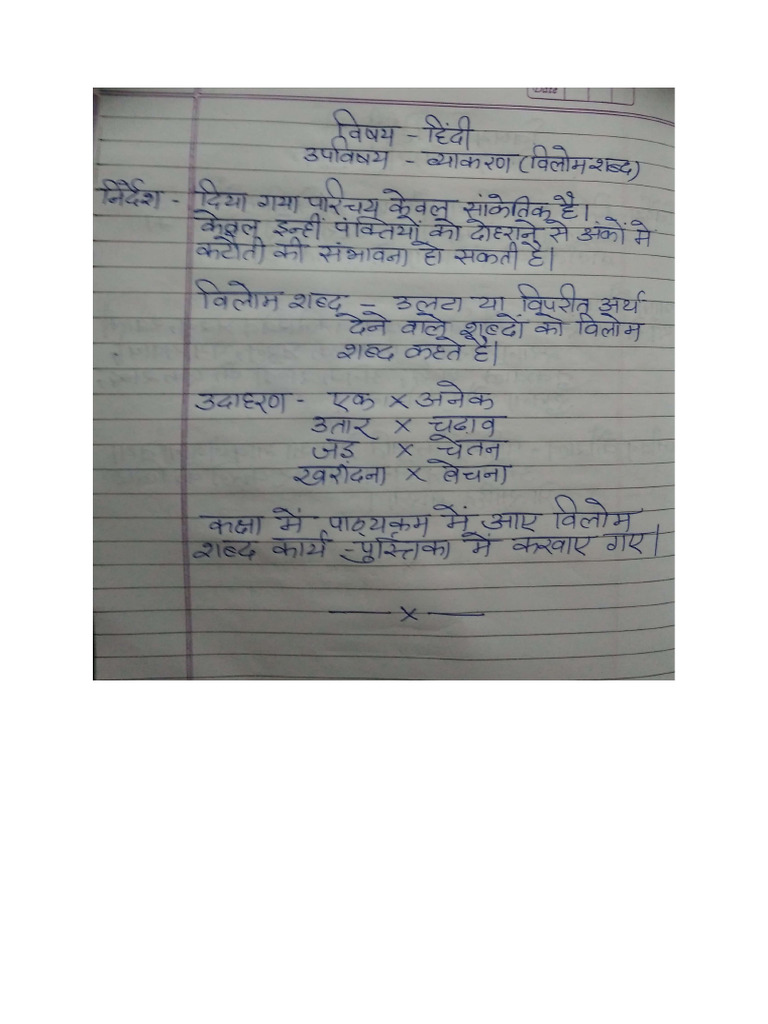 Date
विषय - हिंदी
उपविषय - व्याकरण (विलोम शब्द)
निर्देश - दिया गया परिचय केवल सांकेतिक है।
केवल इन्हीं पंक्तियों को दोहराने से अंकों मे
कटौती की संभावना हो सकती है।
विलोम शब्द - उलटा या विपरीत अर्थ
देने वाले शब्दों को विलोम
शब्द कहते है।
उदाहरण - एक × अनेक
उतार × चढ़ाव
जड़ × चेतन
खरीदना × बेचना
कक्षा में पाठ्यक्रम में आए विलोम
शब्द कार्य-पुस्तिका में करवाए गए।
x